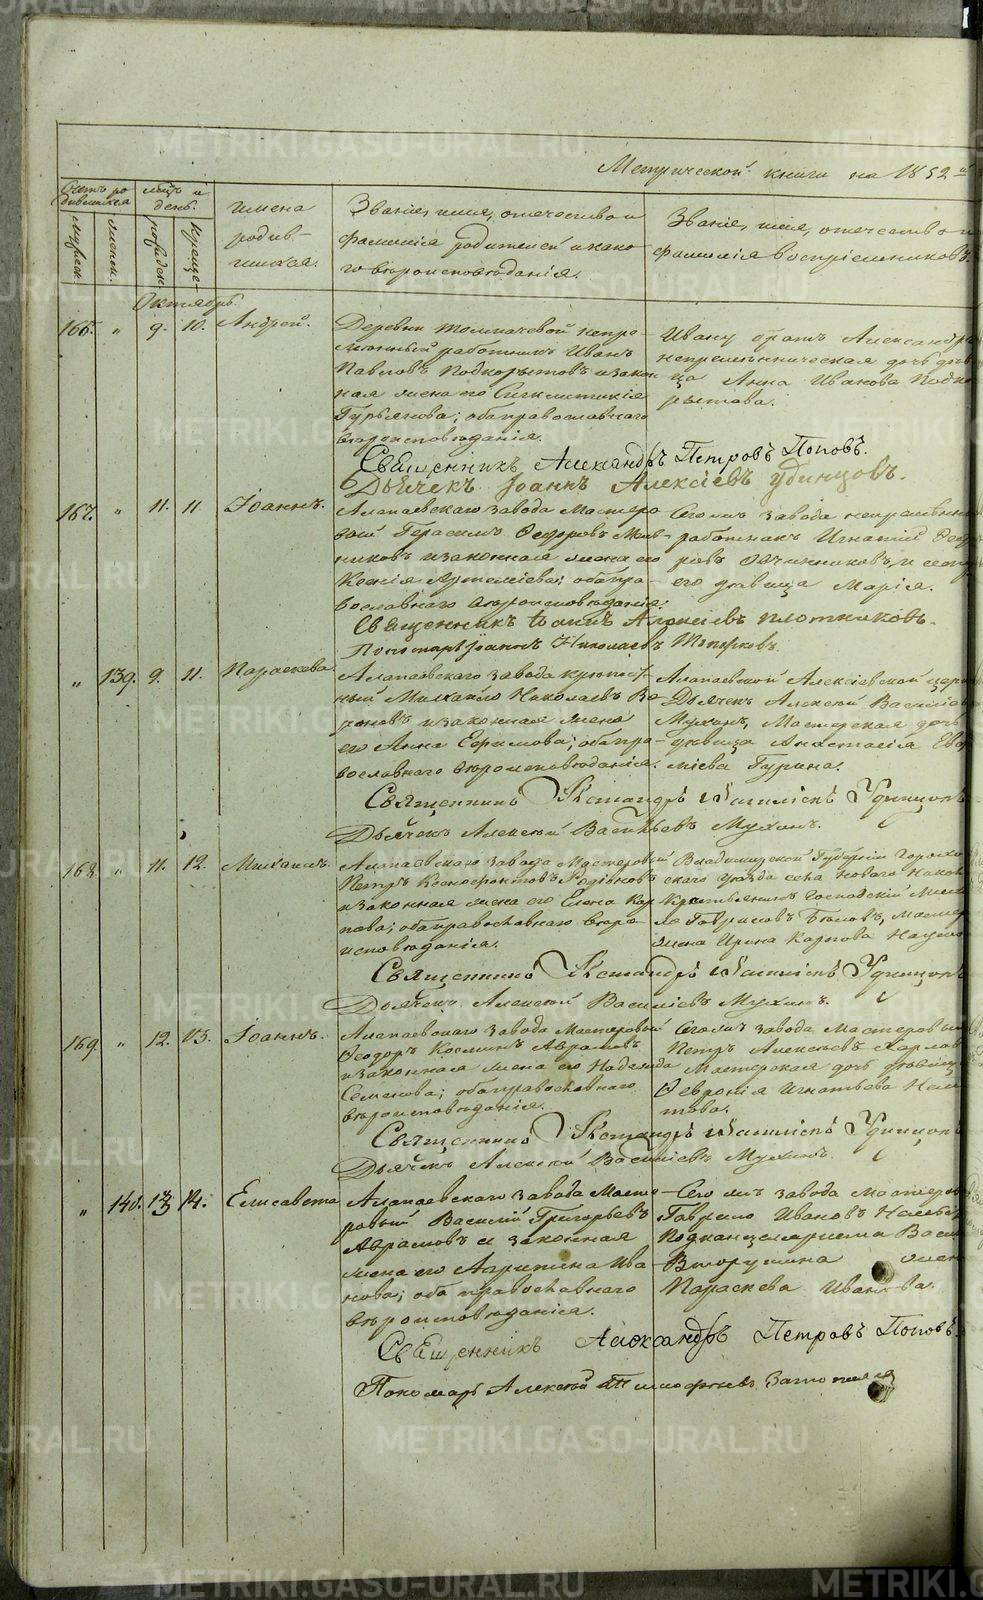 METRIKI.GASO-URAL.RU
Метрической книги на 1852й
Счетъ родившихся
мѣсяцъ и день.
Имена родив-
шихся.
Званіе, имя, отечество и
фамилія родителей и како-
го вѣроисповѣданія.
Званіе, имя, отечество и
фамилія воспріемниковъ.
мужеск.
женск.
рожден.
креще-
Октябрь
166. " 9. 10. Андрей.
Деревни Толмачевой непре-
мѣнный работникъ Иванъ
Павловъ Подкорытовъ и закон-
ная жена его Синклитикія
Гурьянова; оба православнаго
вѣроисповѣданія.
Ивану братъ Александръ
непремѣнническая дочь дѣви-
ца Анна Иванова Подко-
рытова.
Священникъ Александръ Петровъ Поповъ.
Дьячекъ Іоаннъ Алексіевъ Удинцовъ.
167. " 11. 11 Іоаннъ.
Алапаевскаго завода Мастеро-
вой Герасимъ Ѳедоровъ
никовъ и законная жена его
Ксенія Артеміева; оба пра-
вославнаго вѣроисповѣданія.
Сего же завода непремѣнный
работникъ Игнатій Ѳедо-
ровъ Овчинниковъ, и сестра
его дѣвица Марія.
Священникъ Іоаннъ Алексіевъ Плотниковъ.
Пономарь Іоаннъ Николаевъ Топорковъ.
" 139. 9. 11. Параскева.
Алапаевскаго завода крѣпост-
ный Михайло Николаевъ Во-
роновъ и законная жена
его Анна Ефимова; оба пра-
вославнаго вѣроисповѣданія.
Алапаевской Алексіевской церкви
Дьячекъ Алексій Василіевъ
Мухинъ, Мастерская дочь
дѣвица Анастасія Евф
міева Гурина.
Священникъ Александръ Василіевъ Удинцовъ
Дьячекъ Алексій Васильевъ Мухинъ.
168. " 11. 12. Михаилъ.
Алапаевскаго завода Мастеровый
Петръ Ксенофонтовъ Родіоновъ
и законная жена его Елена Кар-
пова; оба православнаго вѣро-
исповѣданія.
Владимирской Губерніи Горохо-
вскаго уѣзда села Новаго Никол
Крестьянинъ Господскій Михай-
ло Гаврисовъ Бѣловъ, Мастер
жена Ирина Карпова
Священникъ Александръ Василіевъ Удинцовъ
Дьячекъ Алексій Василіевъ Мухинъ.
169. " 12. 13. Іоаннъ.
Алапаевскаго завода Мастеровый
Ѳеодоръ Косминъ Аврамовъ
и законная жена его Надежда
Семенова; оба православнаго
вѣроисповѣданія.
Сего же завода Мастеровый
Петръ Алексѣевъ Карлов
Мастерская дочь дѣвица
Февронія Игнатьева
това.
Священникъ Александръ Василіевъ Удинцовъ
Дьячекъ Алексій Василіевъ Мухинъ.
" 140. 13 14. Елисавета
Алапаевскаго завода Масте-
ровый Василій Григорьевъ
Аврамовъ и законная
жена его Агрипина Ива-
нова; оба православнаго
вѣроисповѣданія.
Сего же завода Мастеров
Гаврило Ивановъ
Подканцеляриста Васи
Вторушина жен
Параскева Иванова.
Священникъ Александръ Петровъ Поповъ.
Пономарь Алексій Тимофѣевъ